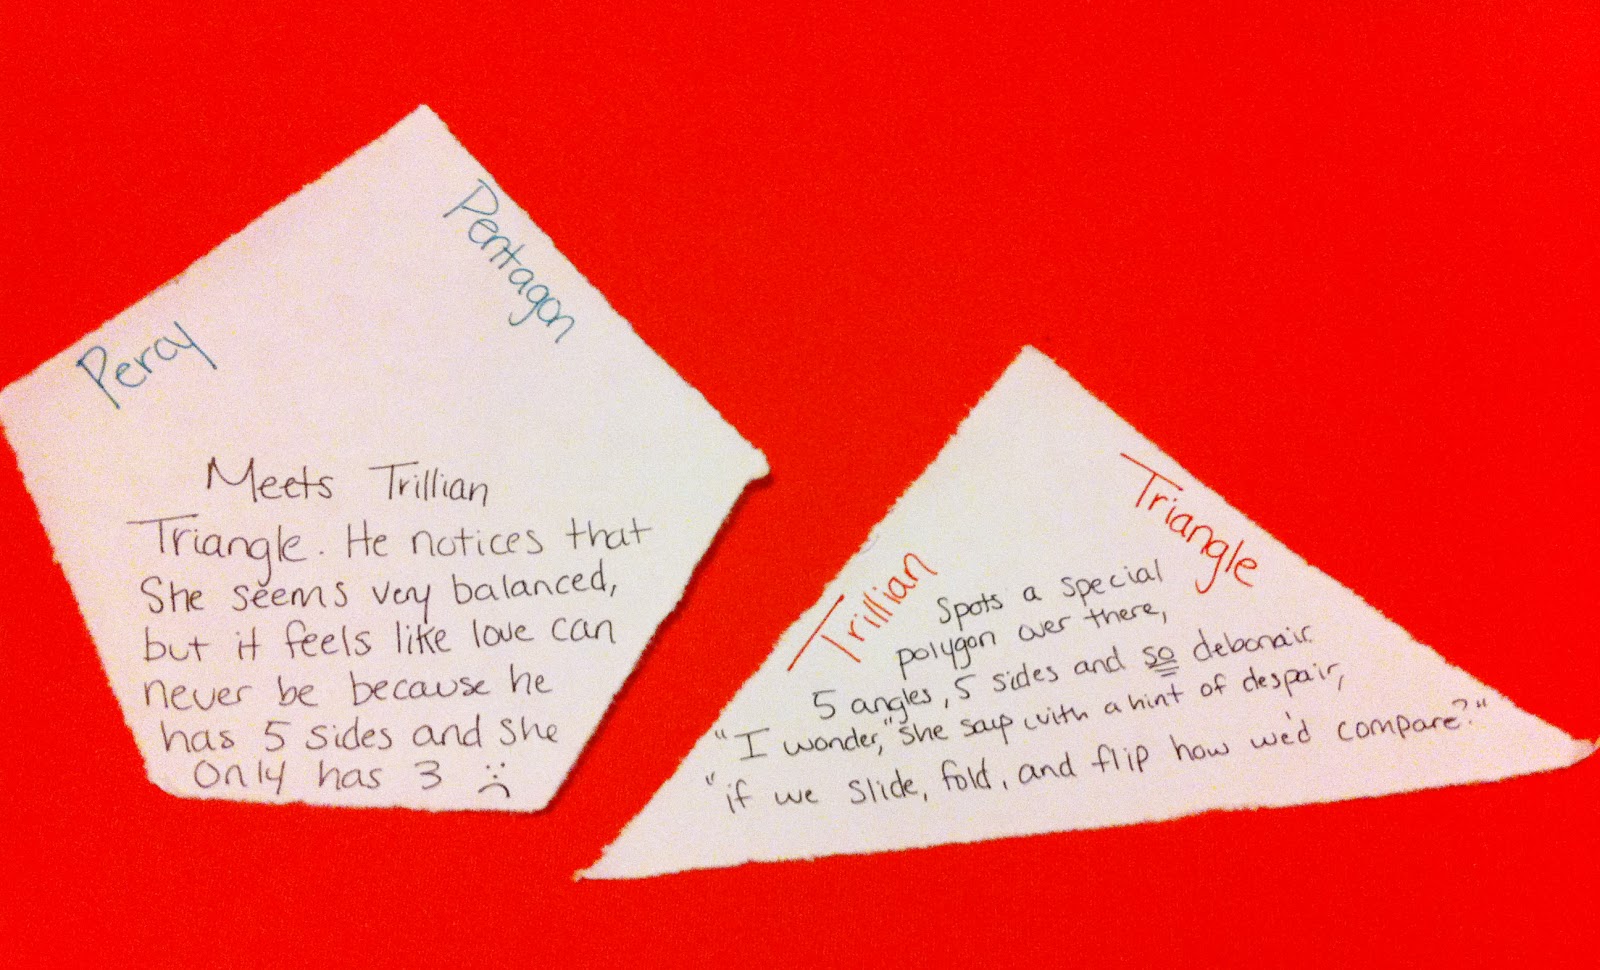 Percy
Pentagon
Meets Trillian
Triangle. He notices that
She seems very balanced,
but it feels like love can
never be because he
has 5 sides and she
only has 3 :(
Trillian
Triangle
Spots a special
polygon over there,
5 angles, 5 sides and so debonair.
"I wonder," she says with a hint of despair,
"if we slide, fold, and flip how we'd compare?"